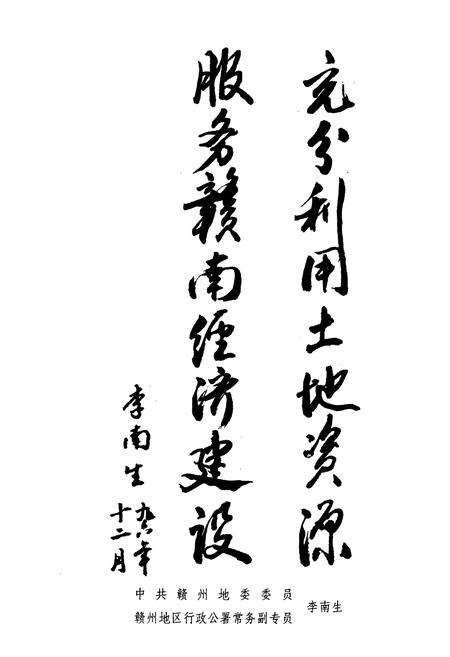 充分利用土地资源
服务赣南经济建设
李南生
九六年
十二月
中共赣州地委委员
赣州地区行政公署常务副专员
李南生